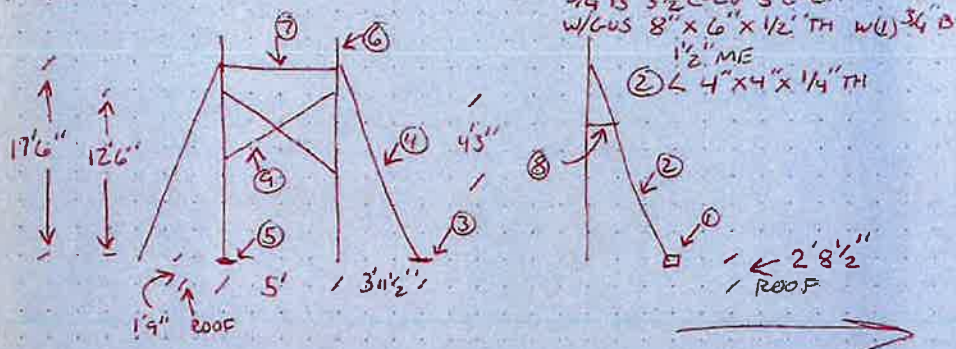 W/GUS 8" X 6" X 1/2" TH W(1) 3/4" B
1 1/2" ME
② L 4" X 4" X 1/4" TH
⑦
⑥
17'6"
12'6"
④
4'3"
⑧
②
⑨
⑤
③
①
5'
3'11 1/2"
2'8 1/2"
ROOF
1'9"
ROOF